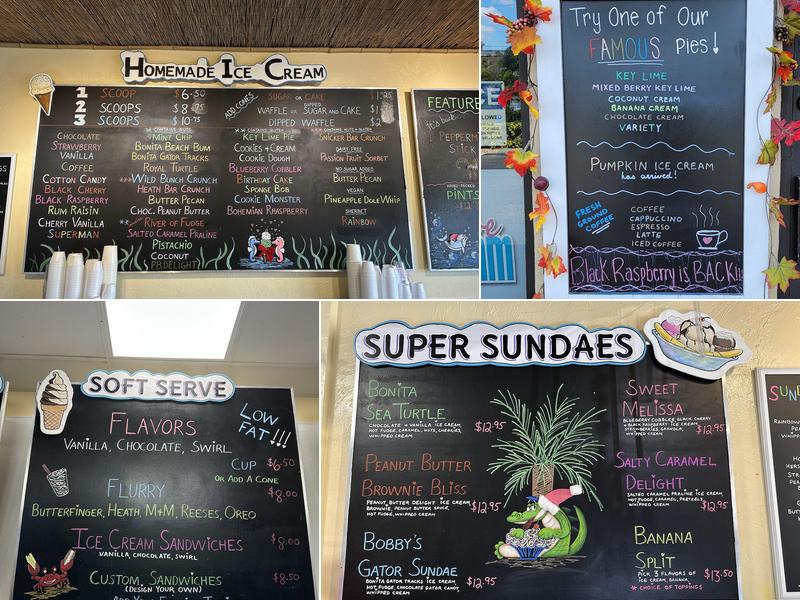 HOMEMADE ICE CREAM
1 SCOOP $6.50
2 SCOOPS $8
3 SCOOPS $9
ADD CONES
SUGAR OR CAKE
WAFFLE OR DIPPED SUGAR AND CAKE
DIPPED WAFFLE
CHOCOLATE
STRAWBERRY
VANILLA
COFFEE
COTTON CANDY
BLACK CHERRY
BLACK RASPBERRY
RUM RAISIN
CHERRY VANILLA
SUPERMAN
MINT CHIP
BONITA BEACH BUM
BONITA GATOR TRACKS
ROYAL TURTLE
***WILD BUNCH CRUNCH
HEATH BAR CRUNCH
BUTTER PECAN
CHOC. PEANUT BUTTER
RIVER OF FUDGE
SALTED CARAMEL PRALINE
PISTACHIO
COCONUT
PB DELIGHT
KEY LIME PIE
COOKIES+CREAM
COOKIE DOUGH
BLUEBERRY COBBLER
BIRTHDAY CAKE
SPONGE BOB
COOKIE MONSTER
BOHEMIAN RHASPBERRY
SNICKER BAR CRUNCH
DAIRY FREE
PASSION FRUIT SORBET
NO SUGAR ADDED
BUTTER PECAN
VEGAN
PINEAPPLE DOLE WHIP
SHERBET
RAINBOW
FEATURE
PEPPERM
STICK
HAND-PACKED
PINTS
Try One of Our
FAMOUS Pies!
KEY LIME
MIXED BERRY KEY LIME
COCONUT CREAM
BANANA CREAM
CHOCOLATE CREAM
VARIETY
PUMPKIN ICE CREAM
has arrived!
FRESH
GROUND
COFFEE
COFFEE
CAPPUCCINO
ESPRESSO
LATTE
ICED COFFEE
Black Raspberry is BACK!!
SOFT SERVE
FLAVORS
VANILLA, CHOCOLATE, SWIRL
LOW
FAT!!!
CUP $6.50
OR ADD A CONE
FLURRY $8.00
BUTTERFINGER, HEATH, M+M, REESES, OREO
ICE CREAM SANDWICHES $8.00
VANILLA, CHOCOLATE, SWIRL
CUSTOM SANDWICHES $8.50
(DESIGN YOUR OWN)
SUPER SUNDAES
BONITA
SEA TURTLE $12.95
CHOCOLATE + VANILLA ICE CREAM,
HOT FUDGE, CARAMEL, NUTS, CHERRIES,
WHIPPED CREAM
PEANUT BUTTER
BROWNIE BLISS $12.95
PEANUT BUTTER DELIGHT ICE CREAM,
BROWNIE, PEANUT BUTTER SAUCE,
HOT FUDGE, WHIPPED CREAM
BOBBY'S
GATOR SUNDAE $12.95
BONITA GATOR TRACKS ICE CREAM,
HOT FUDGE, CHOCOLATE GATOR CANDY,
WHIPPED CREAM
SWEET
MELISSA $12.95
BLUEBERRY COBBLER, BLACK CHERRY
+ BLACK RASPBERRY ICE CREAM,
STRAWBERRIES, GRANOLA,
WHIPPED CREAM
SALTY CARAMEL
DELIGHT $12.95
SALTED CARAMEL PRALINE ICE CREAM,
HOT FUDGE, CARAMEL, PRETZELS,
WHIPPED CREAM
BANANA
SPLIT $13.50
PICK 3 FLAVORS OF
ICE CREAM, BANANA,
* CHOICE OF TOPPINGS